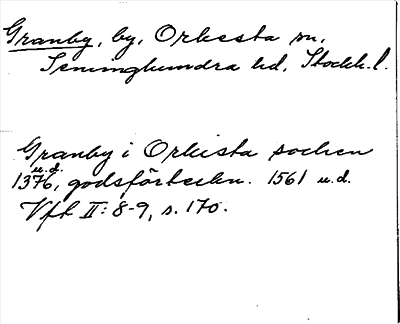 Granby, by, Orkesta sn,
Seminghundra hd, Stockh. l.
Granby i Orkesta socken
u.d.
1376, godsförteckn. 1561 u.d.
Vfk II: 8-9, s. 170.